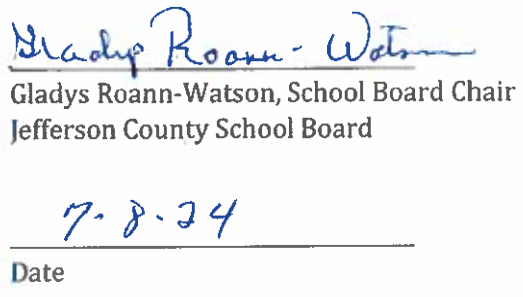 Gladys Roann-Watson
Gladys Roann-Watson, School Board Chair
Jefferson County School Board
7-8-24
Date